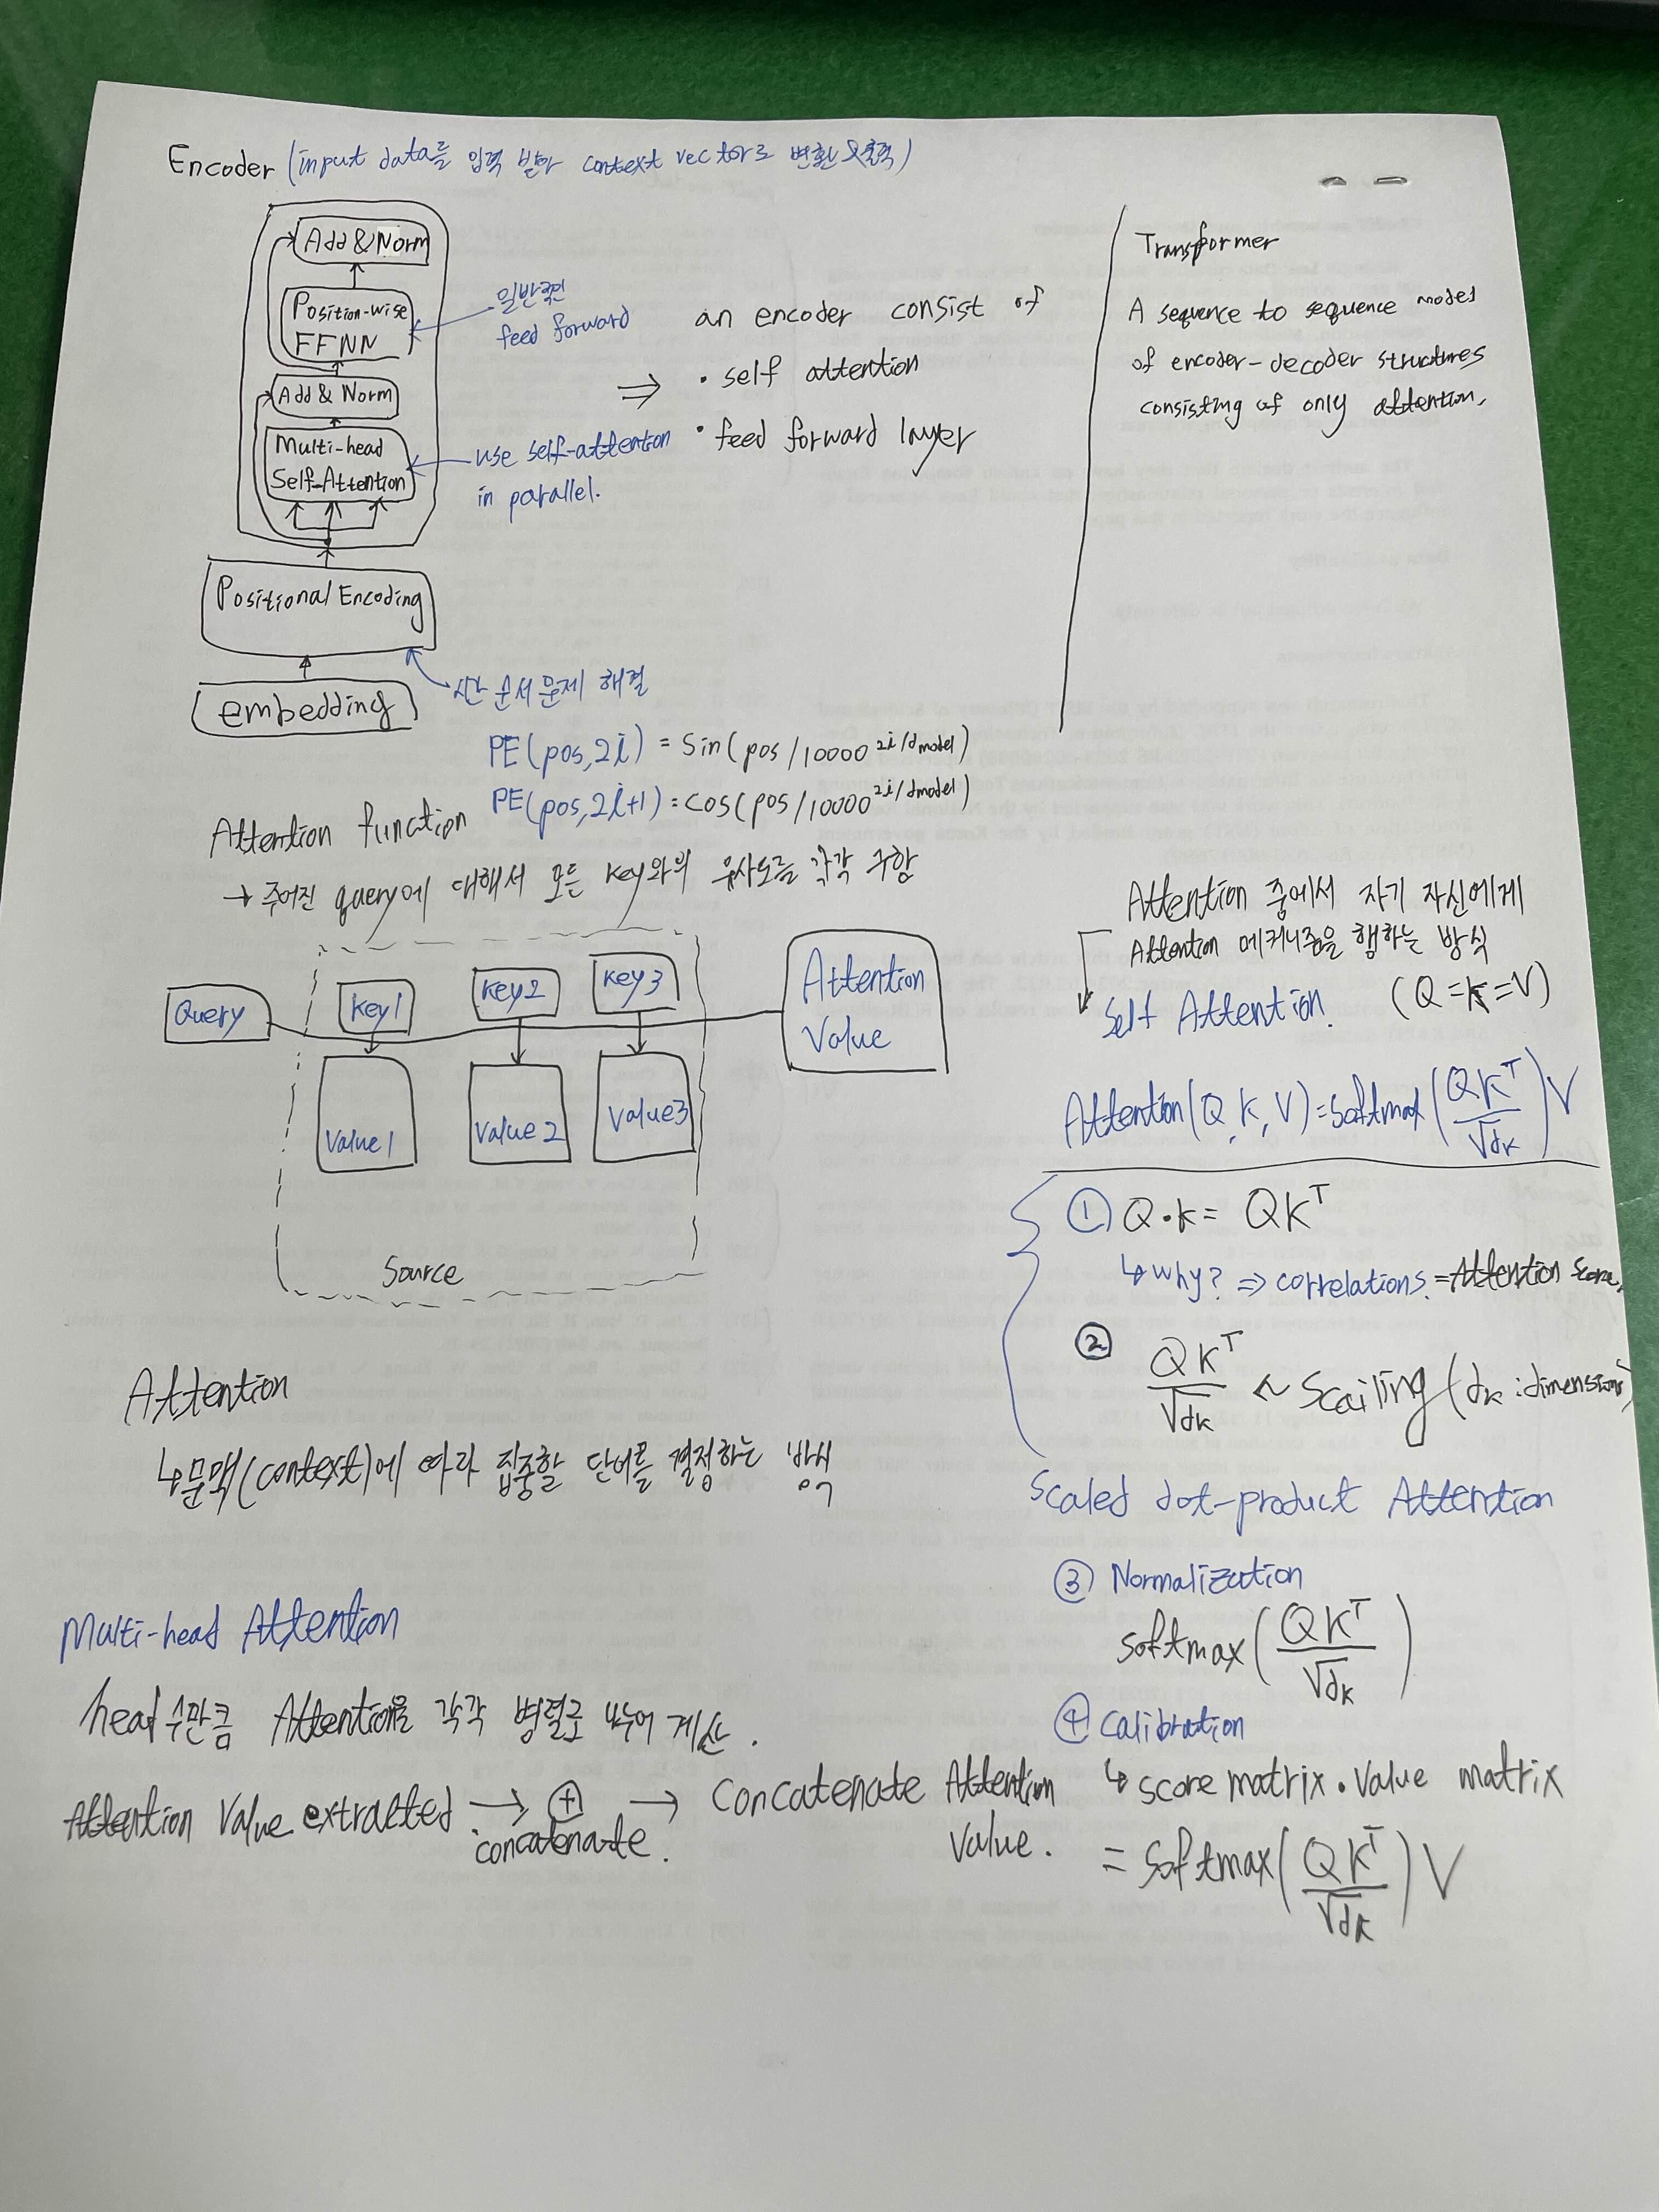 Encoder (input data를 입력 받아 context vector로 변환 & 출력)
Add & Norm
Position-wise
FFNN
Add & Norm
Multi-head
Self-Attention
Positional Encoding
embedding
일반적인
feed forward
use self-attention
in parallel.
an encoder consist of
⇒ • self attention
• feed forward layer
시간 순서 문제 해결
PE(pos, 2i) = Sin(pos/10000^2i/dmodel)
PE(pos, 2i+1) = cos(pos/10000^2i/dmodel)
Transformer
A sequence to sequence model
of encoder-decoder structures
consisting of only attention.
Attention function
→ 주어진 query에 대해서 모든 key와의 유사도를 각각 구함
Query
key1
key2
key3
Value1
Value2
Value3
Source
Attention
Value
Attention 중에서 자기 자신에게
Attention 메커니즘을 행하는 방식
Self Attention. (Q=K=V)
Attention(Q, K, V) = Softmax(QK^T/√dk)V
① Q•K = QK^T
↳ why? ⇒ correlations. = Attention Score.
② QK^T/√dk ↖ Scailing (dk : dimensions)
Scaled dot-product Attention
③ Normalization
softmax(QK^T/√dk)
④ Calibration
↳ score matrix • Value matrix
= Softmax(QK^T/√dk)V
Attention
↳ 문맥(context)에 따라 집중할 단어를 결정하는 방식
Multi-head Attention
head 수만큼 Attention을 각각 병렬로 나누어 계산.
Attention Value extracted → ⊕ → Concatenate Attention
concatenate.
Value.